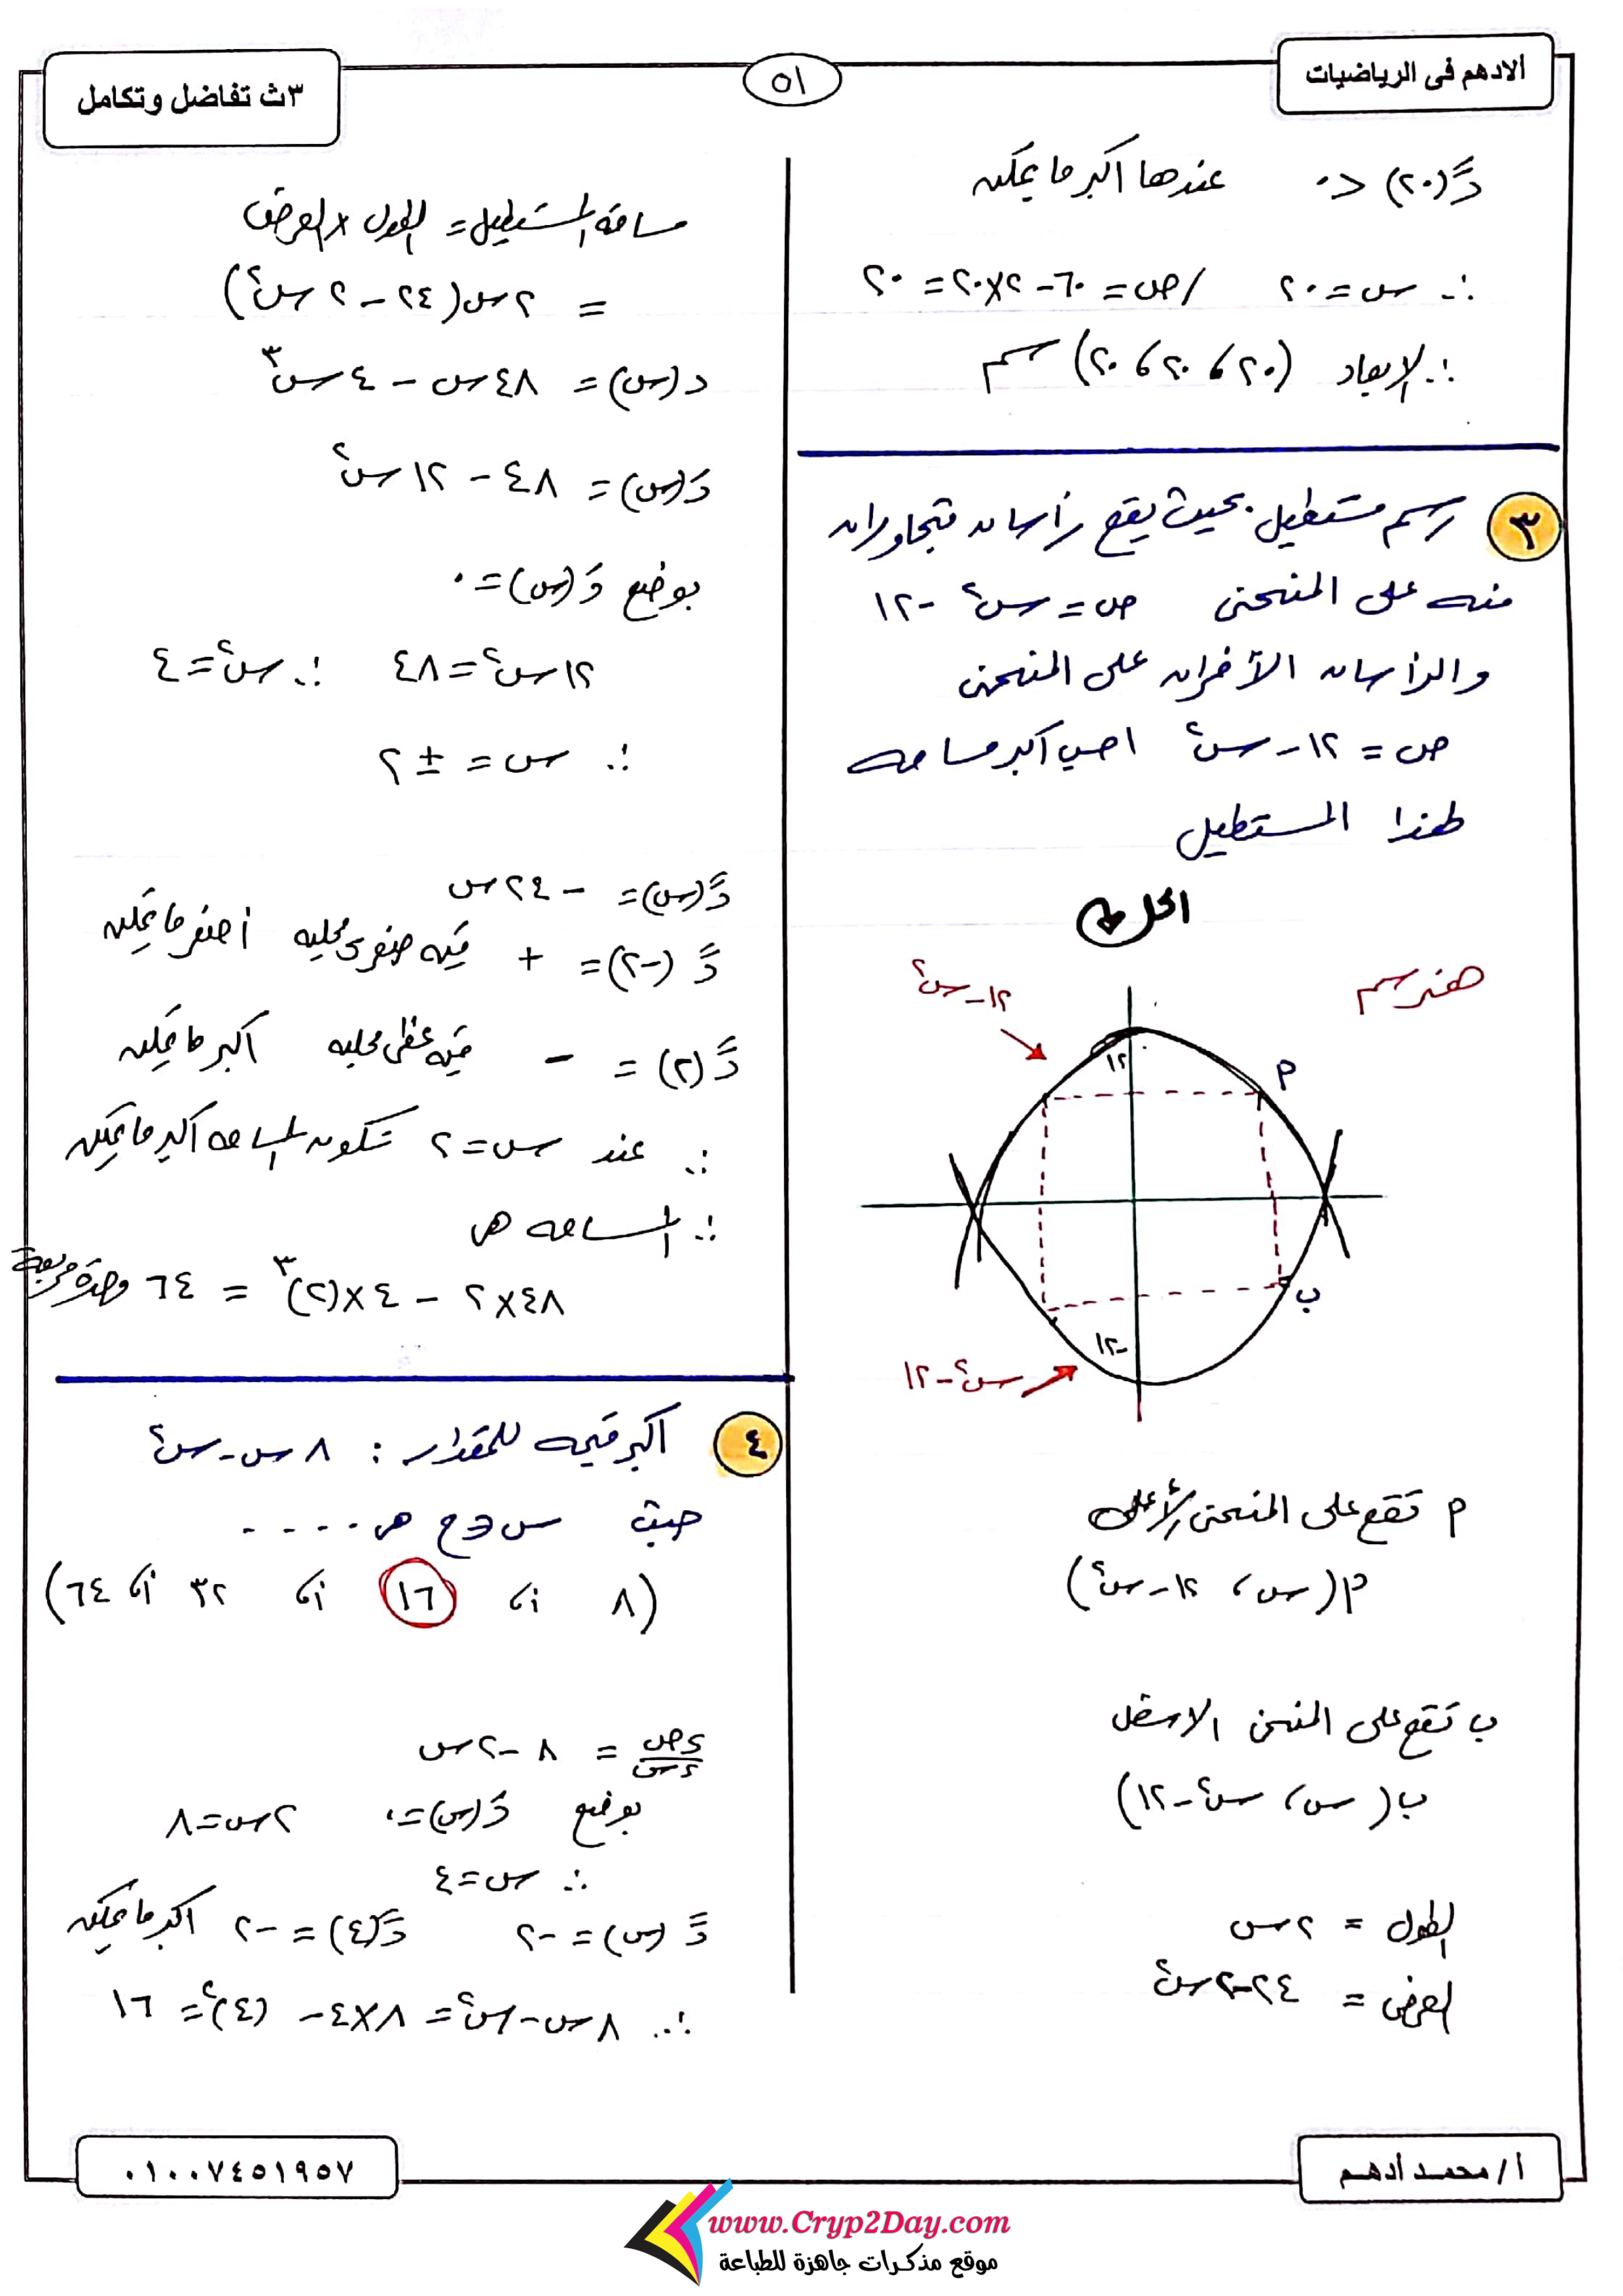 الادهم فى الرياضيات
٥١
٣ث تفاضل وتكامل
دً(٢٠) < ٠ عندها اكبر ما يمكن
∴ س = ٢٠ / ص = ٦٠ - ٢×٢٠ = ٢٠
∴ الابعاد (٢٠ ، ٢٠ ، ٢٠) سم
٣ رسم مستطيل بحيث يقع رأسان متجاوران
منه على المنحنى ص = س٢ - ١٢
والرأسان الأخران على المنحنى
ص = ١٢ - س٢ احسب اكبر مساحه
لهذا المستطيل
الحل
هنرسم
١٢ - س٢
١٢
م
ب
-١٢
س٢ - ١٢
م تقع على المنحنى الأعلى
م (س ، ١٢ - س٢)
ب تقع على المنحنى الاسفل
ب (س ، س٢ - ١٢)
الطول = ٢س
العرض = ٢٤ - ٢س٢
مساحة المستطيل = الطول × العرض
= ٢س (٢٤ - ٢س٢)
د(س) = ٤٨س - ٤س٣
دَ(س) = ٤٨ - ١٢س٢
بوضع دَ(س) = ٠
١٢س٢ = ٤٨ ∴ س٢ = ٤
∴ س = ± ٢
دً(س) = - ٢٤س
دً(-٢) = + قيمه صغرى محليه أصغر ما يمكن
دً(٢) = - قيمه عظمى محليه اكبر ما يمكن
∴ عند س = ٢ تكون المساحه اكبر ما يمكن
∴ المساحه هى
٤٨×٢ - ٤×(٢)٣ = ٦٤ وحدة مربعة
٤ اكبر قيمه للمقدار : ٨س - س٢
حيث س ∈ ح هى ....
(٨ ، أ، ١٦ أ، ٣٢ أ، ٦٤)
دص/دس = ٨ - ٢س
بوضع دَ(س) = ٠ ٢س = ٨
∴ س = ٤
دً(س) = -٢ دً(٤) = -٢ اكبر ما يمكن
∴ ٨س - س٢ = ٨×٤ - (٤)٢ = ١٦
أ/ محمد أدهم
٠١٠٠٧٤٥١٩٥٧
www.Cryp2Day.com
موقع مذكرات جاهزة للطباعة